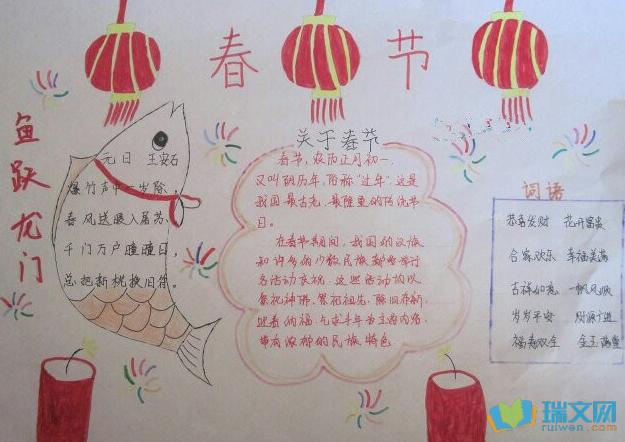 春节
鱼跃龙门
元日 王安石
爆竹声中一岁除,
春风送暖入屠苏
千门万户曈曈日,
总把新桃换旧符。
关于春节
春节,农历正月初一,
又叫阴历年,俗称“过年”.这是
我国最古老、最隆重的传统节
日。
在春节期间,我国的汉族
和许多的少数民族都要举行
各活动庆祝,这些活动均以
祭祀神佛、祭祀祖先、除旧布新、
迎春纳福、乞求丰年为主要内容,
带有浓郁的民族特色
词语
恭喜发财 花开富贵
合家欢乐 幸福美满
吉祥如意 一帆风顺
岁岁平安 财源广进
福寿双全 金玉满堂
瑞文网
ruiwen.com